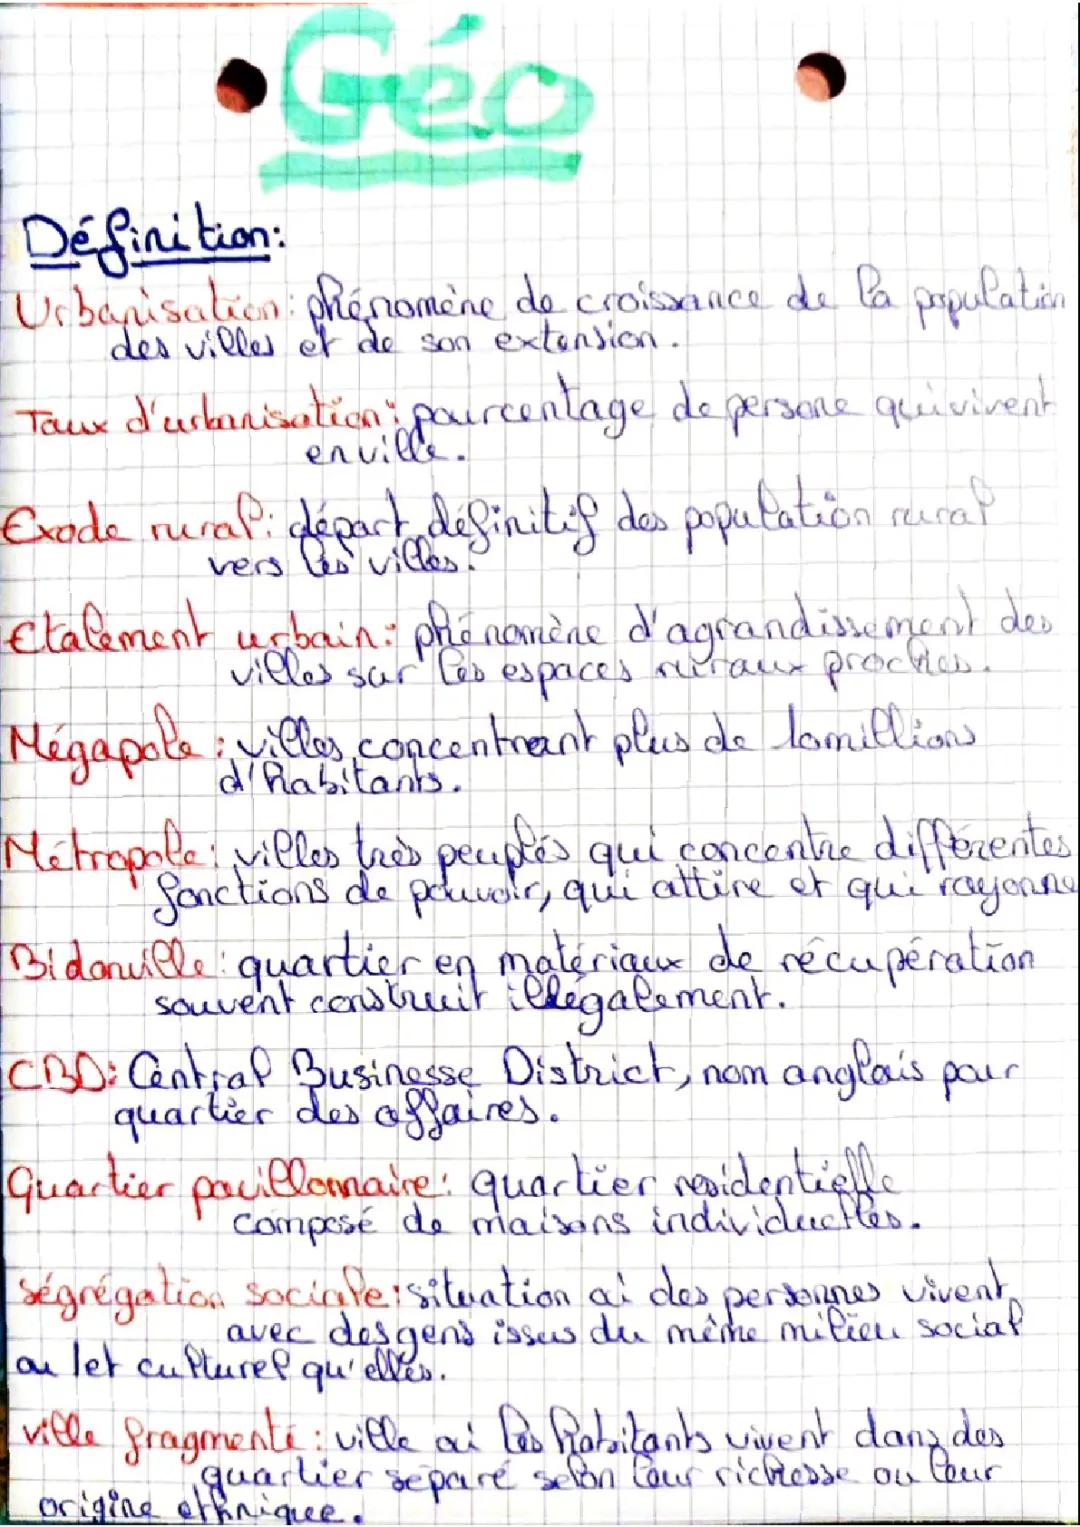 Géo
Définition:
Urbanisation: phénomène de croissance de la population
des villes et de son extension.
Taux d'urbanisation: pourcentage de persone qui vivent
en ville.
Exode rural: départ définitif des population rural
vers les villes.
Etalement urbain: phénomène d'agrandissement des
villes sur les espaces ruraux proches.
Mégapole: villes concentrant plus de 10 millions
d'habitants.
Métropole: villes très peuplés qui concentre différentes
fonctions de pouvoir, qui attire et qui rayonne
Bidonville: quartier en matériaux de récupération
souvent construit illégalement.
CBD: Central Businesse District, nom anglais pour
quartier des affaires.
Quartier pavillonnaire: quartier residentielle
composé de maisons individuelles.
ségrégation sociale: situation ou des personnes vivent
avec des gens issus du même milieu social
ou /et culturel qu'elles.
ville fragmenté: ville ou les habitants vivent dans des
quartier séparé selon leur richesse ou leur
origine ethnique.